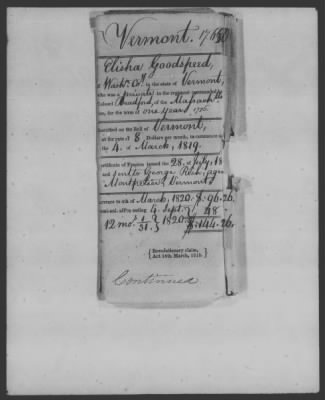 Vermont. 176
Elisha Goodspeed,
Washn. Coy. in the state of Vermont,
who was a private in the regiment commanded by
Colonel Bradford, of the Massach.
line, for the term of one year, 1776.
Inscribed on the Roll of Vermont,
at the rate of 8 Dollars per month, to commence on
the 4. of March, 1819.
Certificate of Pension issued the 28. of July, 18
and sent to George Rich, agen
Montpelier, Vermont
Arrears to 4th of March, 1820. $:96.26.
Semi-anl. all'ce ending 4. Sept. 48
12 mo. 1/31. } 1820. $:144.26.
{ Revolutionary claim,
Act 18th March, 1818. }
Continued